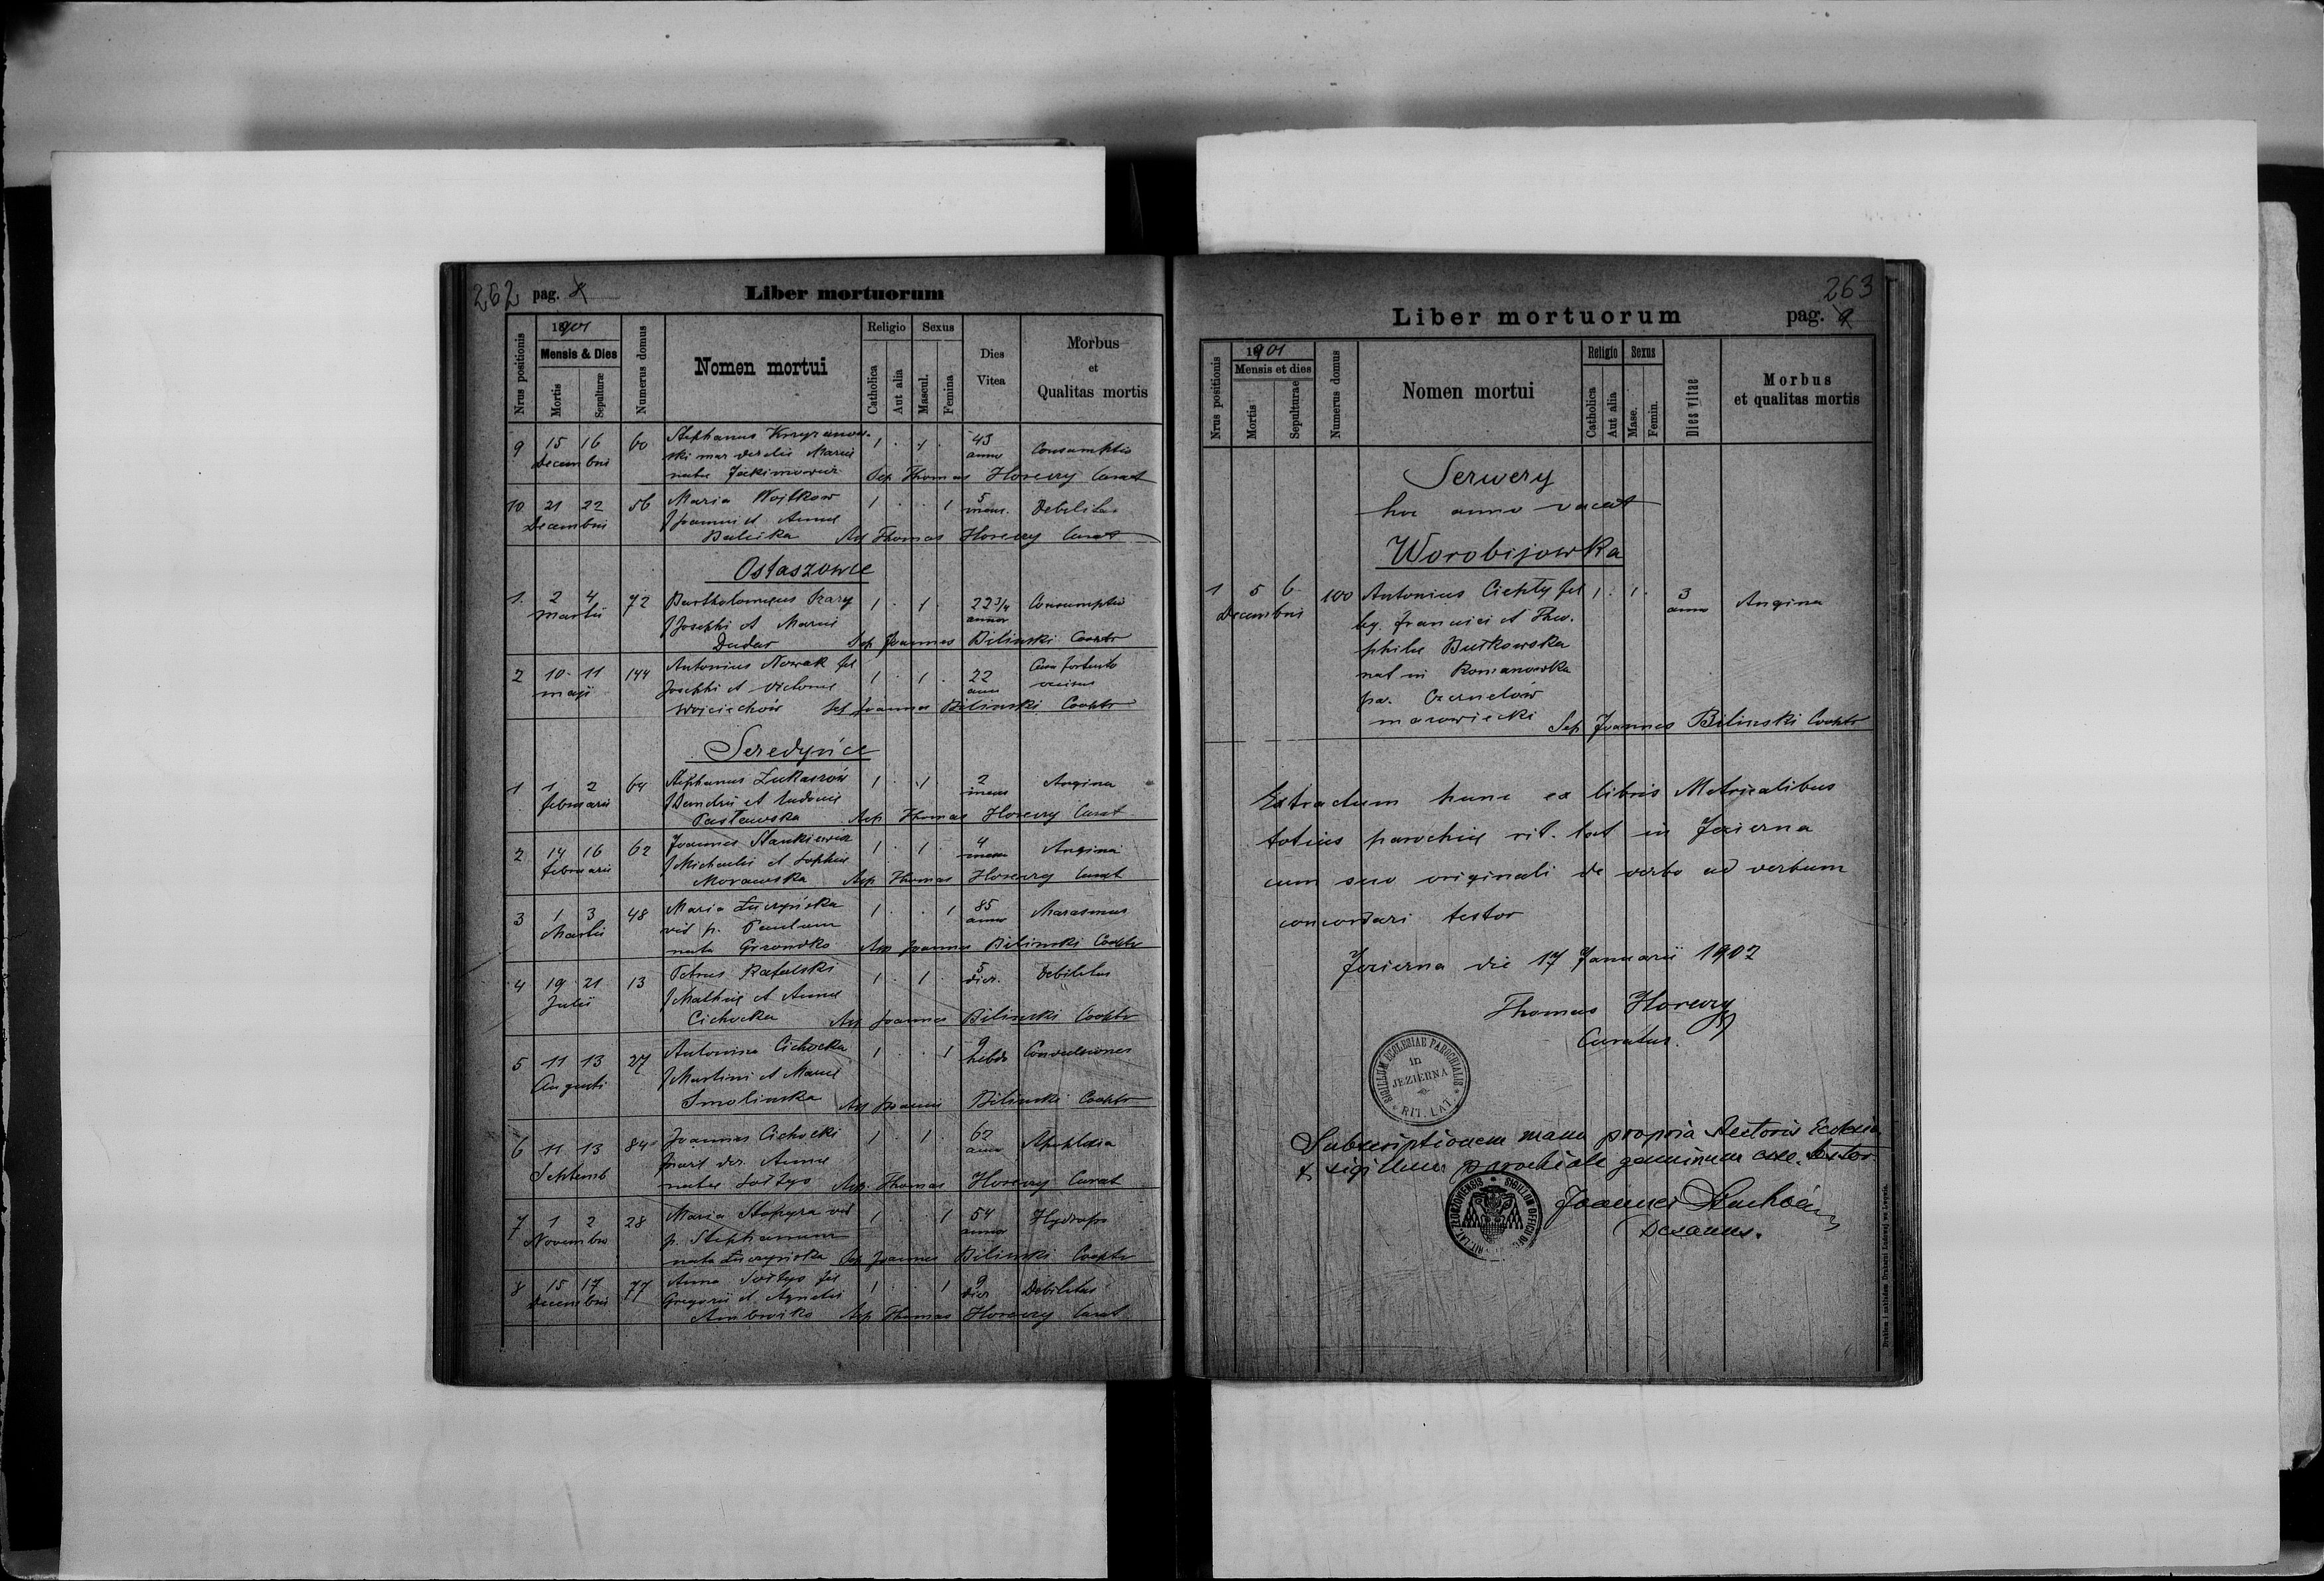 262 pag. 8
Liber mortuorum
Nrus positionis
1901
Mensis & Dies
Mortis
Sepulturæ
Numerus domus
Nomen mortui
Religio
Catholica
Aut alia
Sexus
Mascul.
Femina
Dies
Vitea
Morbus
et
Qualitas mortis
9 15 16 60 Stephanus 1 . 1 . 43 Consumptio
Decembris ski mar Mariæ anno
natæ Jackimowicz Sep Thomas Horeczy Curat
10 21 22 56 Maria Wojtkow 1 . . 1 5 Debilitas
Decembris f Joannis et Annæ mens.
Buleika Sep Thomas Horeczy Curat
Ostaszowce
1. 2 4 72 Bartholomeus 1 . 1 . 22 3/4 Consumptio
Martii f Josephi et Mariæ annor
Dudar Sep Joannes Bilinski Cooptr
2 10 11 144 Antonius Nowak fil 1 . 1 . 22 Casu fortuito
maji Josephi et Victoriæ anno occisus
Wojciechów Sep Joannes Bilinski Cooptr
Seredyńce
1 1 2 64 Stephanus Łukaszów 1 . 1 2 Angina
februarii et Ludovicæ mens
Pasławska Sep Thomas Horeczy Curat
2 14 16 62 Joannes Stankiewicz 1 . 1 . 4 Angina
februarii f Michaelis et Sophiæ mens
Morawska Sep Thomas Horeczy Curat
3 1 3 48 Maria Łuczyńska 1 . . 1 85 Marasmus
Martii vid p. Paulum anno
nata Gronodko Sep Joannes Bilinski Cooptr
4 19 21 13 Petrus Rafalski 1 . 1 . 5 Debilitas
Julii f Mathiæ et Annæ dier.
Cichocka Sep Joannes Bilinski Cooptr
5 11 13 27 Antonina Cichocka 1 . . 1 9 Convulsiones
Augusti f Martini et Mariæ hebdo
Smolinska Sep Joannes Bilinski Cooptr
6 11 13 84 Joannes Cichocki 1 . 1 . 62 Apoplexia
Septemb der. Annæ anno
natæ Sołtys Sep. Thomas Horeczy Curat
7 1 2 28 Maria Stopyra vid 1 . . 1 54 Hydrops
Novembris p. Stephanum annor
nata Łuczyńska Sep Joannes Bilinski Cooptr
8 15 17 77 Anna Sołtys fil 1 . . 1 9 Debilitas
Decembris Gregorii et Agnetis dier
Ambroiko Sep Thomas Horeczy Curat
263
Liber mortuorum pag. 9
Nrus positionis
1901
Mensis et dies
Mortis
Sepulturae
Numerus domus
Nomen mortui
Religio
Catholica
Aut alia
Sexus
Masc.
Femin.
Dies vitae
Morbus
et qualitas mortis
Serwery
hoc anno vacat
Worobijowka
1 5 6 100 Antonius Ciepły fil 1 . 1 . 3 Angina
Decembris leg. Francisci et Theo- anno
philæ Butkowska
nat in Romanowka
par. Czernelów
mazowiecki Sep Joannes Bilinski Cooptr
Extractum hunc ex libris Metricalibus
totius parochiæ rit. lat in Jezierna
cum suo originali de verbo ad verbum
concordari testor
Jezierna die 17 Januarii 1902
Thomas Horeczy
Curatus.
SIGILLUM ECCLESIAE PAROCHIALIS
in
JEZIERNA
RIT. LAT.
Subscriptionem manu propria Rectoris Ecclesiæ
& sigillum parochiale genuinum esse testor
Joannes
Decanus.
Drukiem i nakładem Drukarni Ludowej we Lwowie.